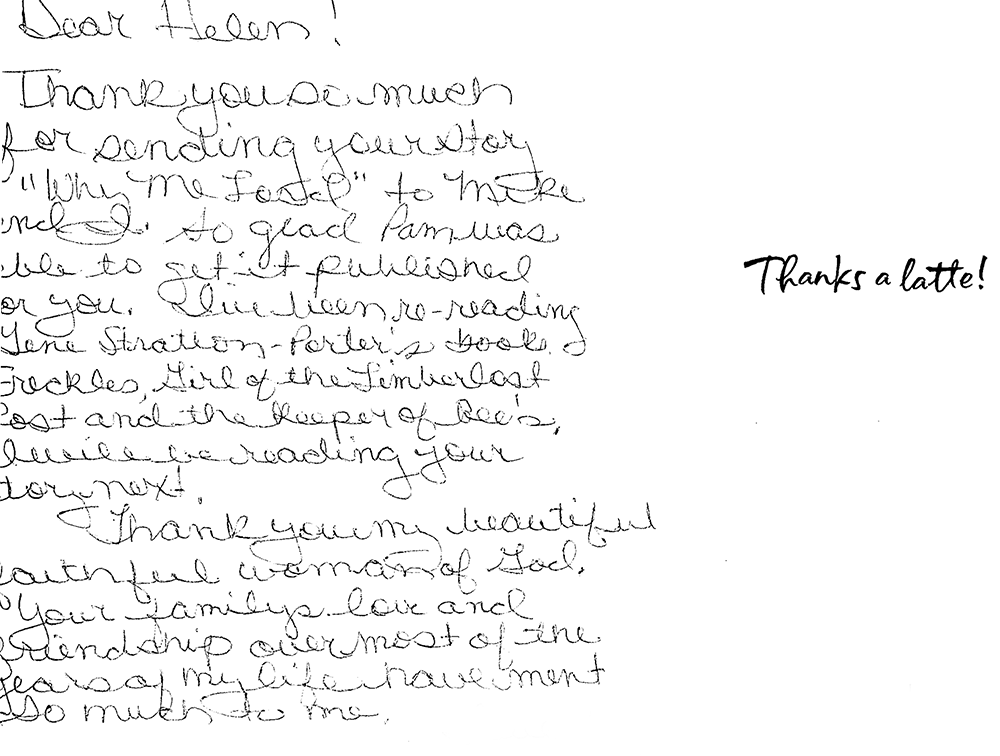 Dear Helen!
Thank you so much
for sending your story
"Why Me Lord" to Mike
and I. So glad Pam was
ble to get it published
or you. I've been re-reading
Gene Stratton-Porter's books
Freckles, Girl of the Limberlost
ost and the Keeper of Bee's,
I will be reading your
tory next.
Thank you my beautiful
faithful woman of God.
Your familys love and
friendship over most of the
years of my life have ment
so much to me.
Thanks a latte!